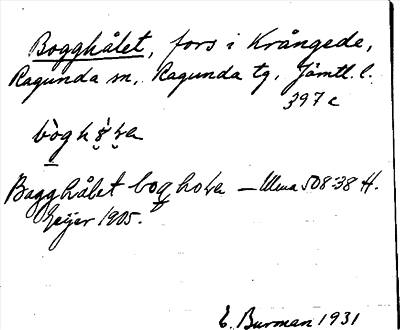 Bogghålet, fors i Krångede,
Ragunda sn, Ragunda tg, Jämtl. l.
397 c
Bagghålet – Ulma 508:38 H.
Geijer 1905.
E. Burman 1931